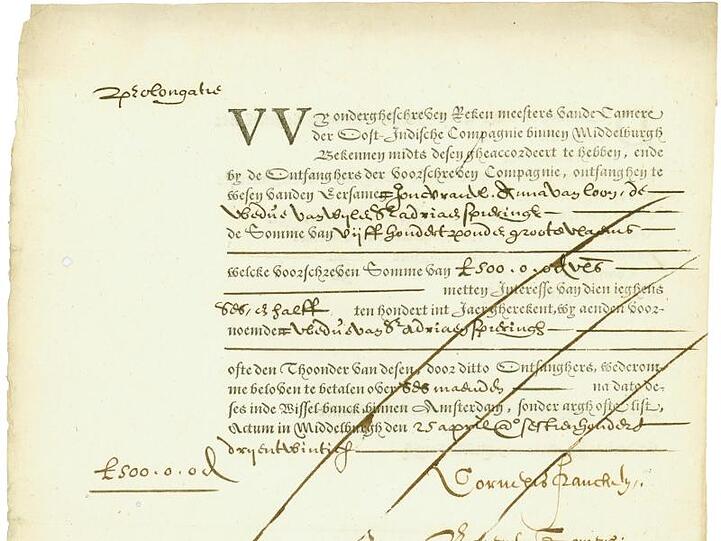 Prolongatie
VVY ondergheschreven Reken meesters vande Camere
der Oost-Indische Compagnie binnen Middelburgh
Bekennen midts desen gheaccordeert te hebben, ende
by de Ontfanghers der voorschreven Compagnie, ontfanghen te
wesen vanden Eersame Joncvrauw. Anna van loon, de
Wedue van Wylen Sr. adriaen spieringh
de Somme van Vijff hondert ponden groots vlaems
welcke voorschreven Somme van £ 500. 0. 0d vls
metten Interesse van dien ieghens
ses, en halff ten hondert int Jaer gherekent, wy aenden voor-
noemde Wedue van Sr. adriaen spieringh
ofte den Thoonder van desen, door ditto Ontfanghers, wederom-
me beloven te betalen over ses maenden na dato de-
ses inde Wissel-banck binnen Amsterdam, sonder argh ofte list,
Actum in Middelburgh den 25 april Ao. sesthienhondert
dryentwintich
£ 500. 0. 0d